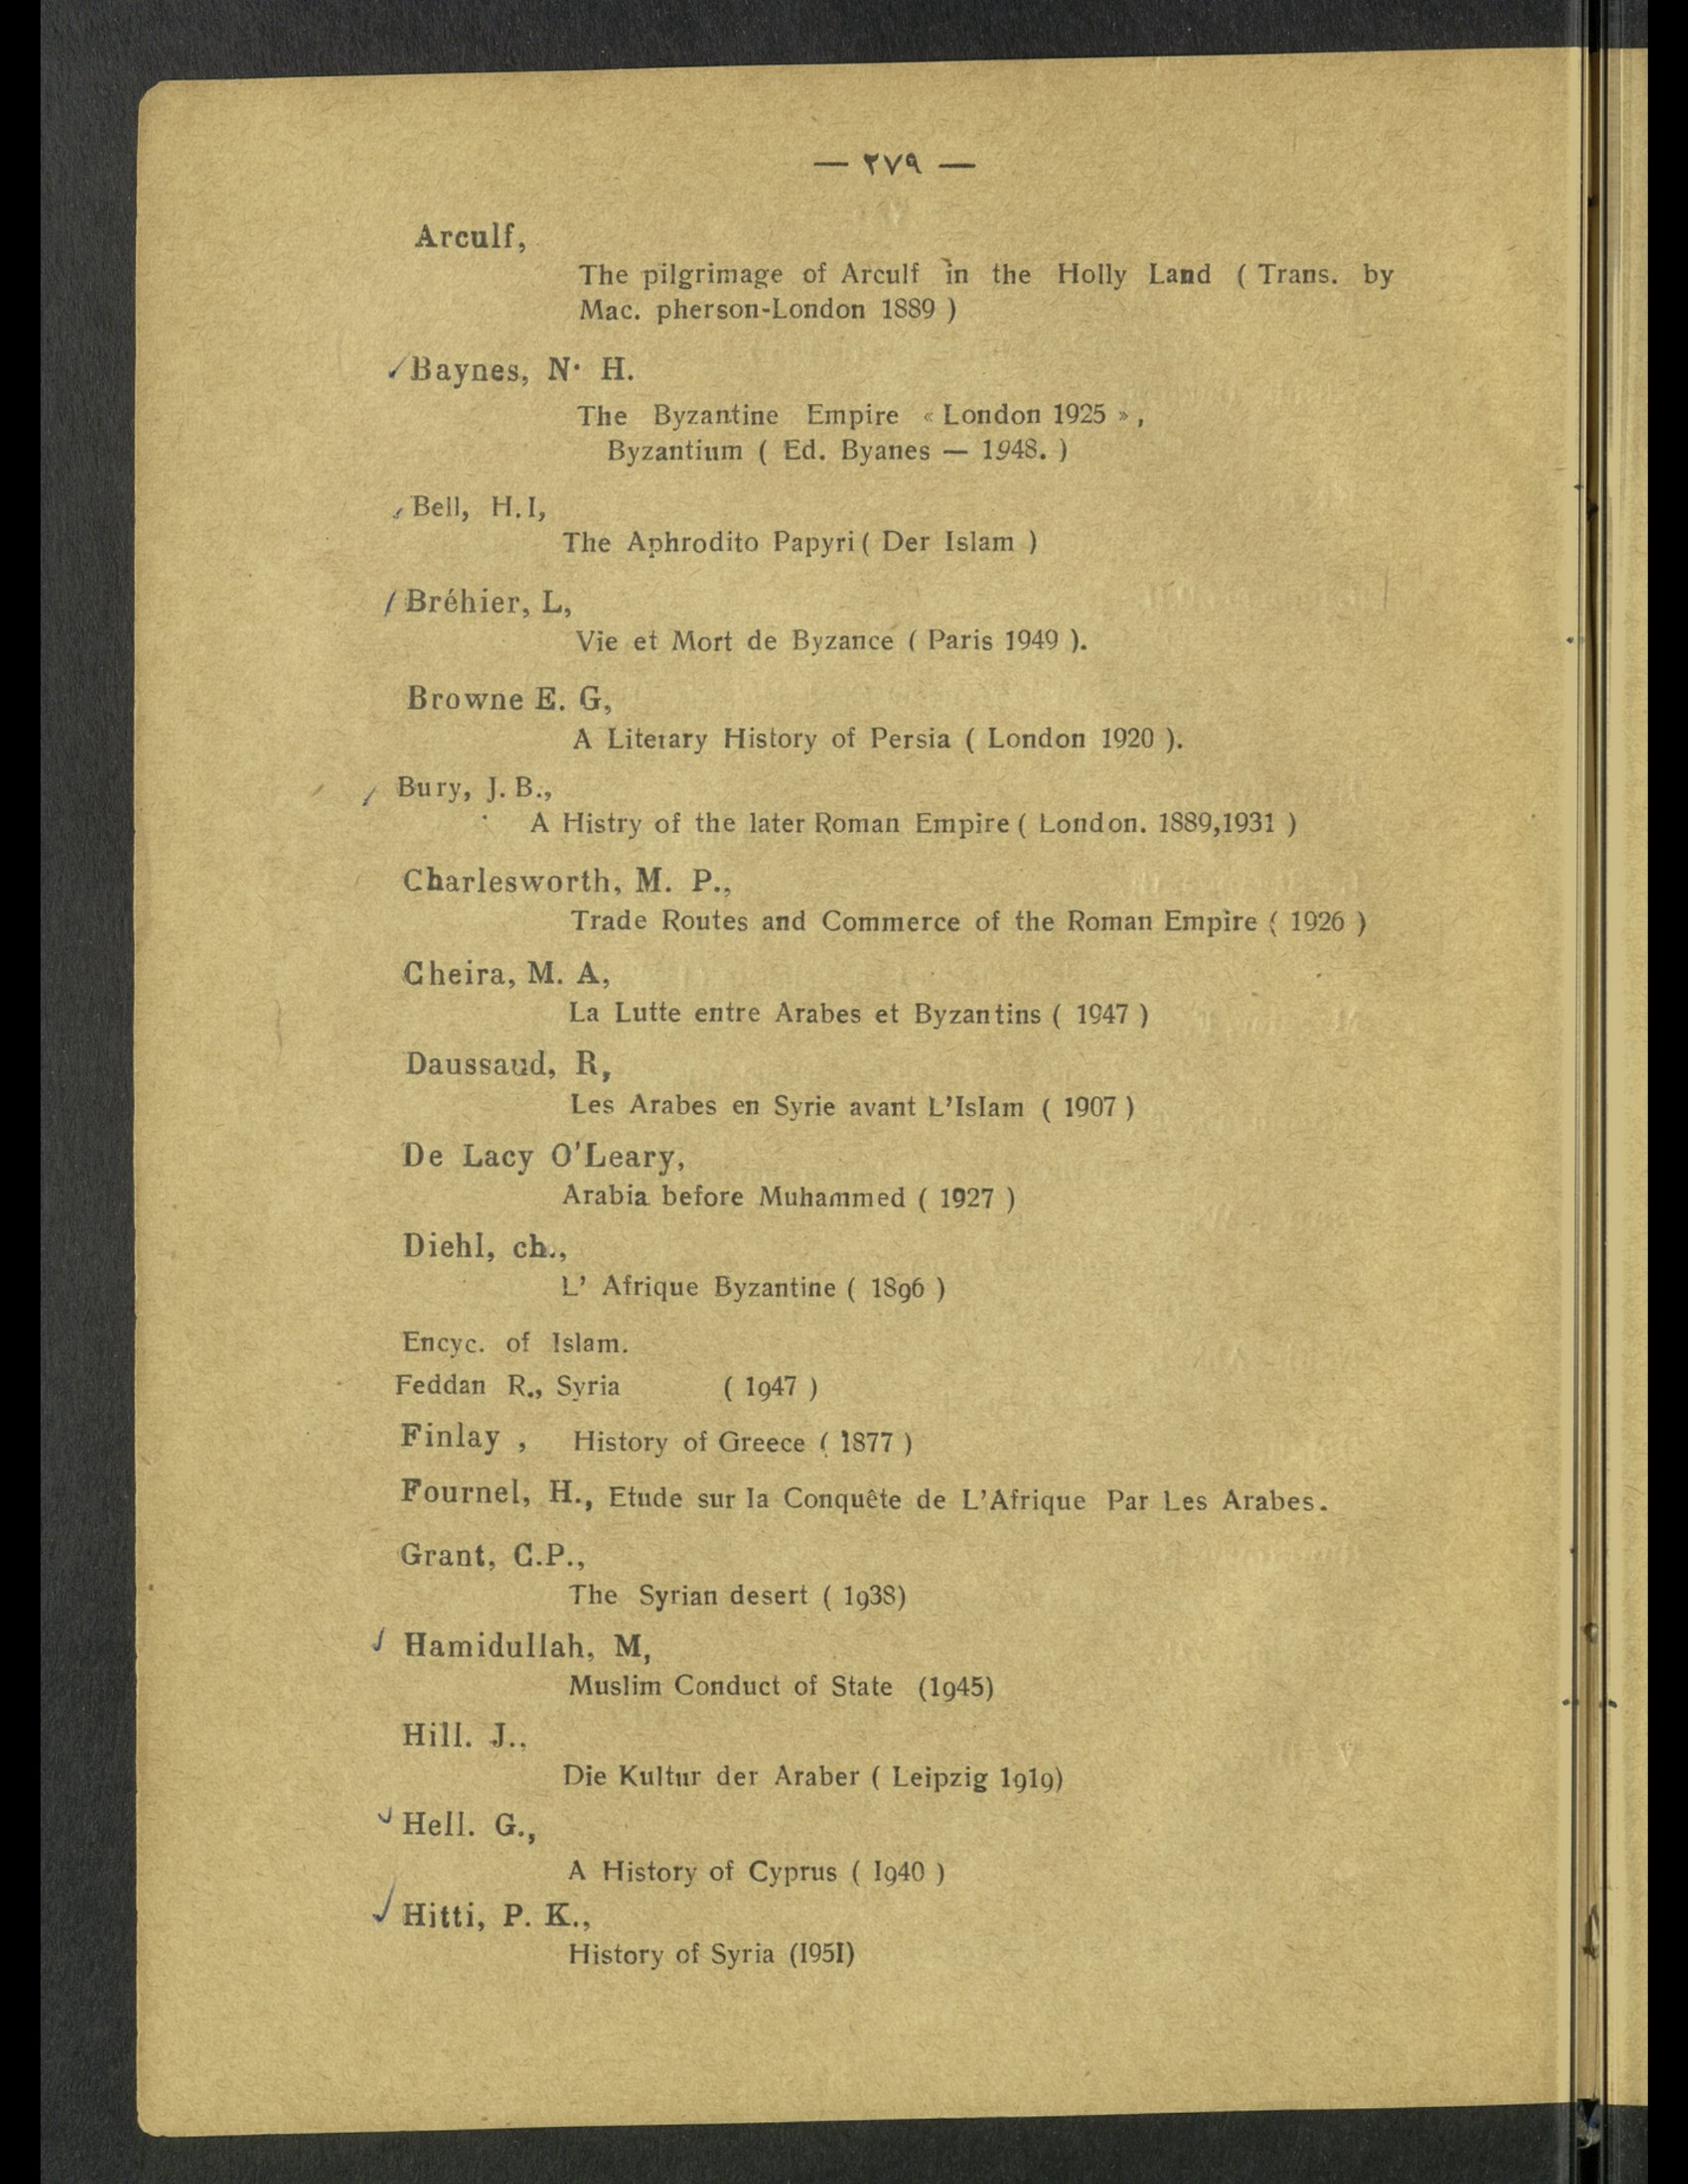 — ٢٧٩ —
Arculf,
The pilgrimage of Arculf in the Holly Land ( Trans. by
Mac. pherson-London 1889 )
Baynes, N· H.
The Byzantine Empire « London 1925 » ,
Byzantium ( Ed. Byanes — 1948. )
Bell, H.I,
The Aphrodito Papyri ( Der Islam )
Bréhier, L,
Vie et Mort de Byzance ( Paris 1949 ).
Browne E. G,
A Literary History of Persia ( London 1920 ).
Bury, J. B.,
A Histry of the later Roman Empire ( London. 1889,1931 )
Charlesworth, M. P.,
Trade Routes and Commerce of the Roman Empire ( 1926 )
Cheira, M. A,
La Lutte entre Arabes et Byzantins ( 1947 )
Daussaud, R,
Les Arabes en Syrie avant L'Islam ( 1907 )
De Lacy O'Leary,
Arabia before Muhammed ( 1927 )
Diehl, ch.,
L' Afrique Byzantine ( 1896 )
Encyc. of Islam.
Feddan R., Syria ( 1947 )
Finlay , History of Greece ( 1877 )
Fournel, H., Etude sur la Conquête de L'Afrique Par Les Arabes.
Grant, C.P.,
The Syrian desert ( 1938)
Hamidullah, M,
Muslim Conduct of State (1945)
Hill. J..
Die Kultur der Araber ( Leipzig 1919)
Hell. G.,
A History of Cyprus ( I940 )
Hitti, P. K.,
History of Syria (I95I)